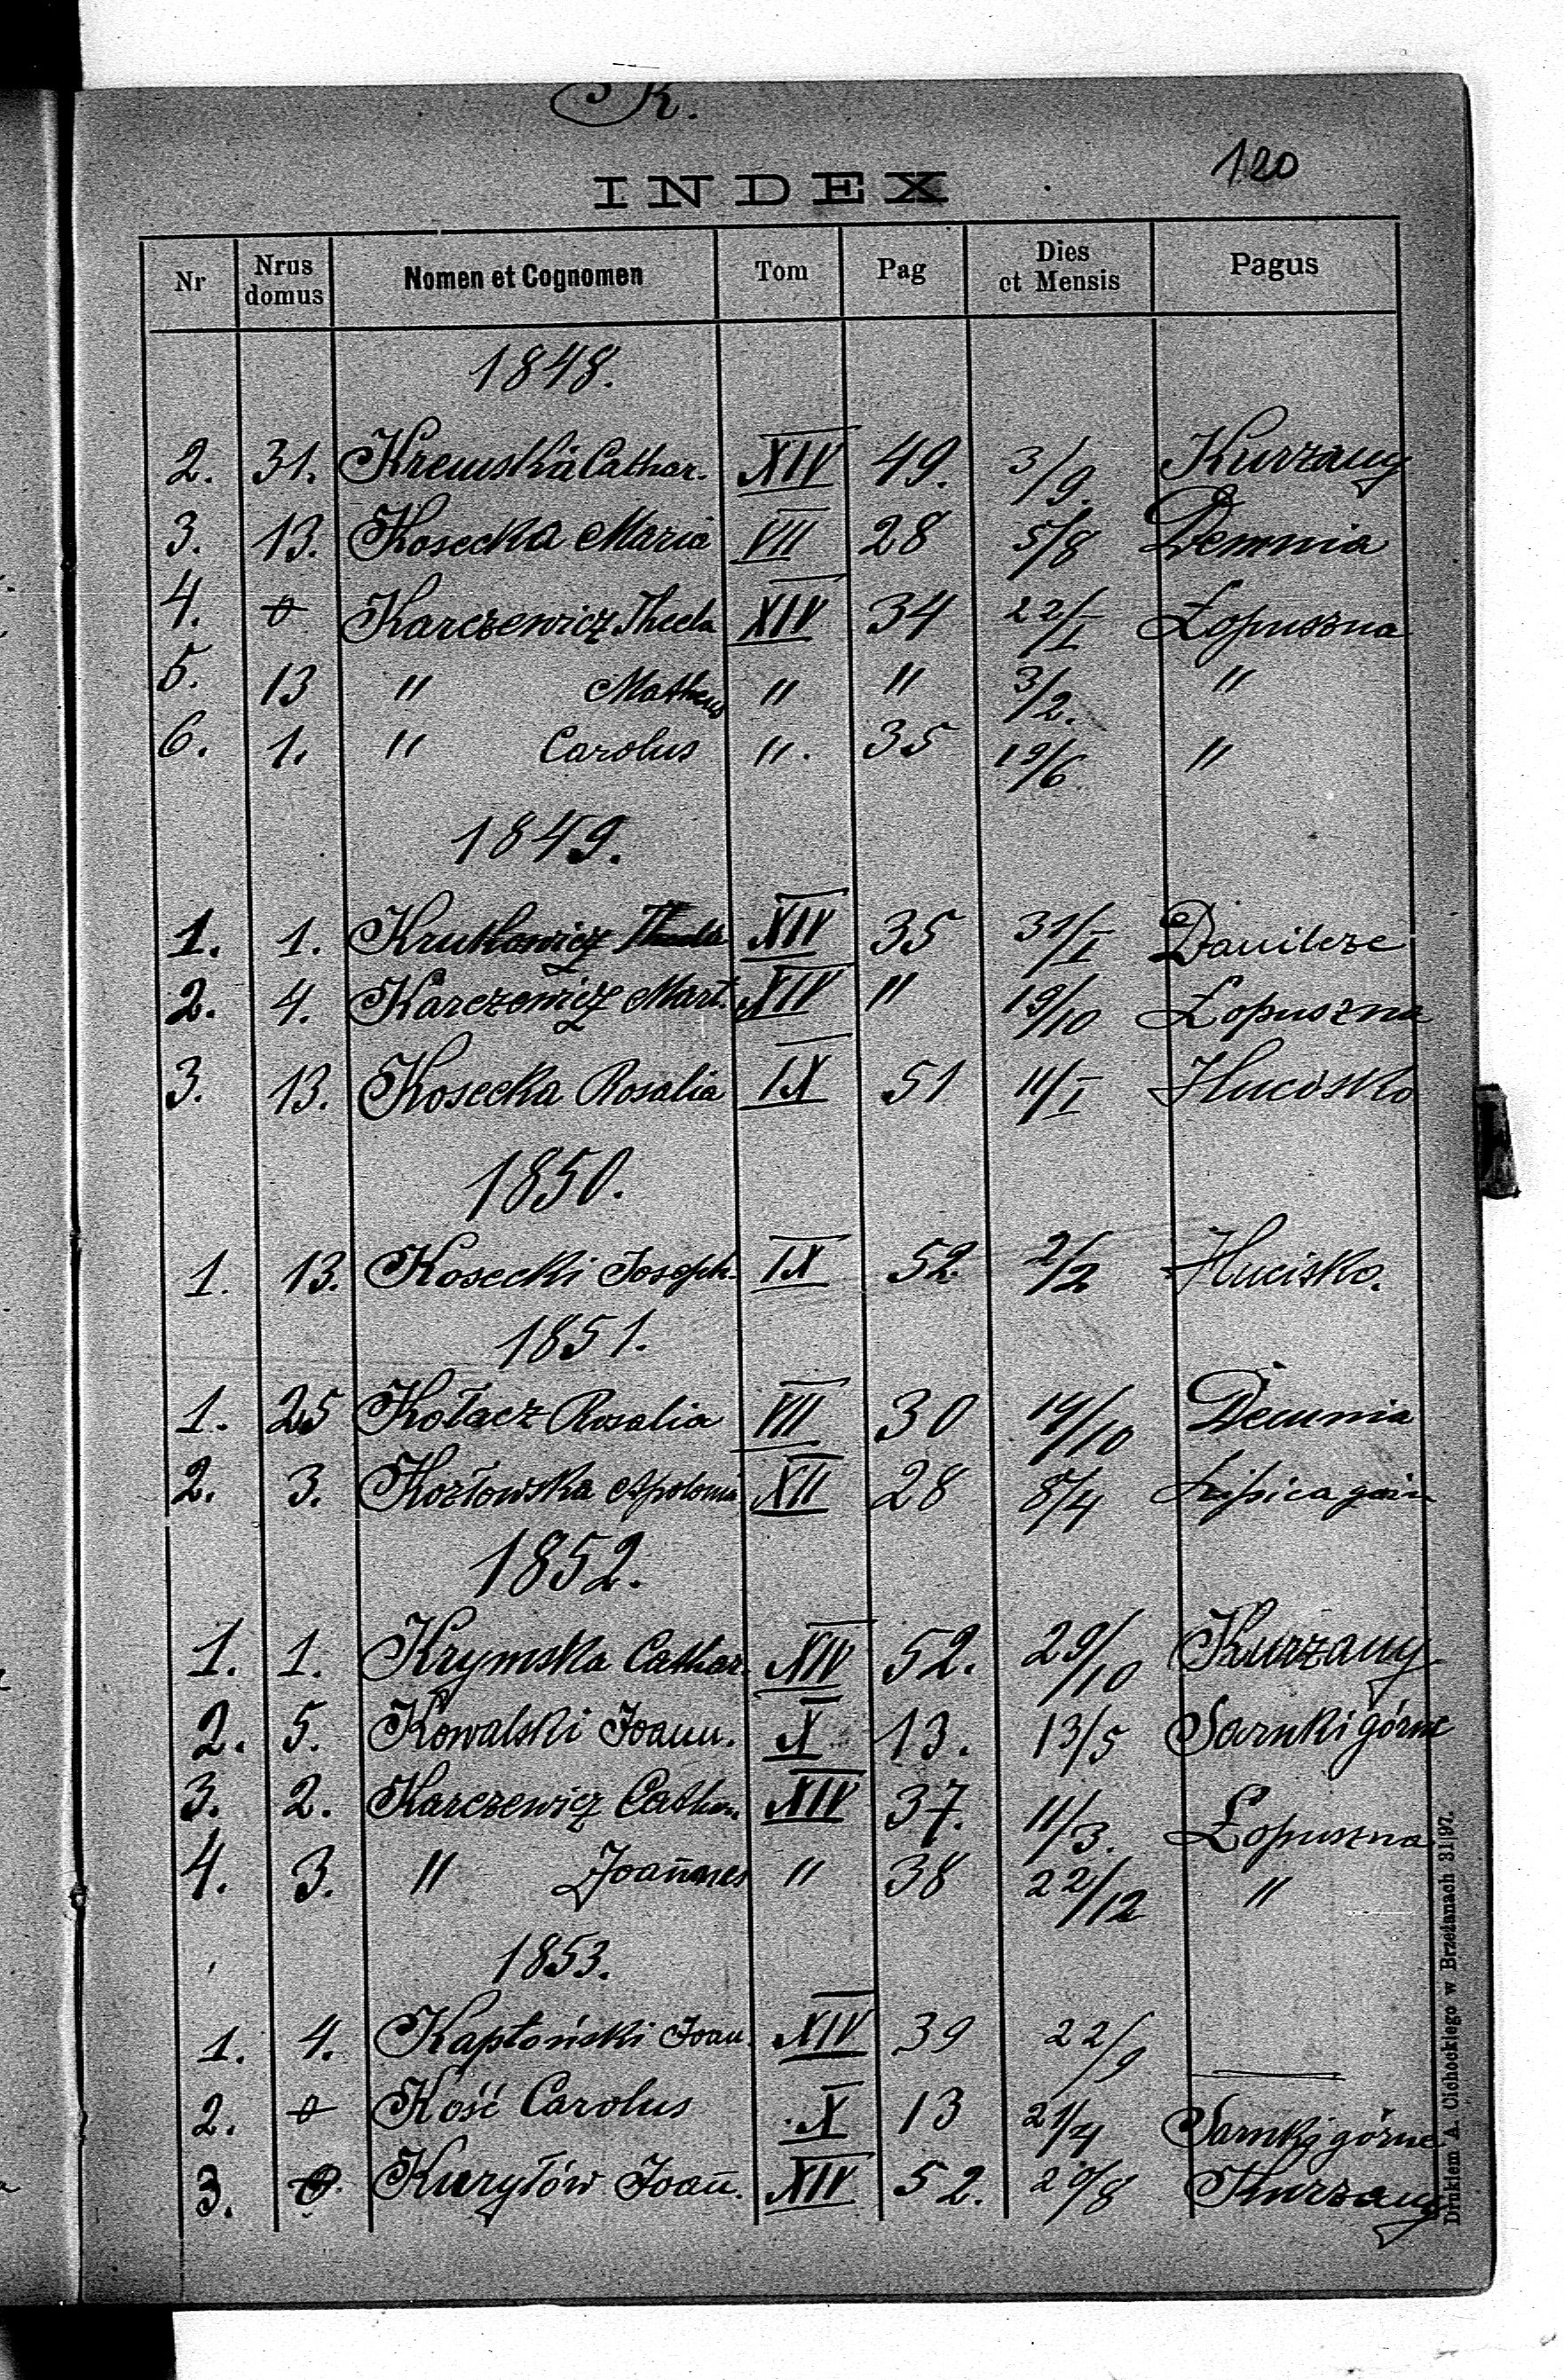 K.
120
INDEX
Nr | Nrus domus | Nomen et Cognomen | Tom | Pag | Dies et Mensis | Pagus
1848.
2. 31. Kremska Cathar. XIV 49. 3/9. Kurzany
3. 13. Kosecka Maria VII 28 5/8 Demnia
4. 0 Karczewicz Thecla XIV 34 22/I Łopuszna
5. 13 " Matheus " " 3/2. "
6. 1. " Carolus ". 35 19/6. "
1849.
1. 1. Krutkowicz XIV 35 31/I Danilcze
2. 4. Karczewicz Mart. XIV " 19/10 Łopuszna
3. 13. Kosecka Rosalia IX 51 11/I Hucisko
1850.
1. 13. Kosecki Joseph. IX 52 2/2 Hucisko.
1851.
1. 25 Kołacz Rosalia VII 30 14/10 Demnia
2. 3. Kozłowska Apolonia XII 28 8/4 Lipica górn
1852.
1. 1. Krymska Cathar. XIV 52. 29/10 Kurzany
2. 5. Kowalski Joann. X 13. 13/5 Sarnki górne
3. 2. Karczewicz Cathar. XIV 37. 11/3. Łopuszna
4. 3. " Joannes " 38 22/12 "
1853.
1. 4. Kapłoński Joan. XIV 39 22/9 —
2. 0 Kość Carolus X 13 21/4 Sarnki górne
3. 0. Kuryłów Joan̄. XIV 52. 20/8 Kurzany
Drukiem A. Cichockiego w Brzeżanach 31|97.